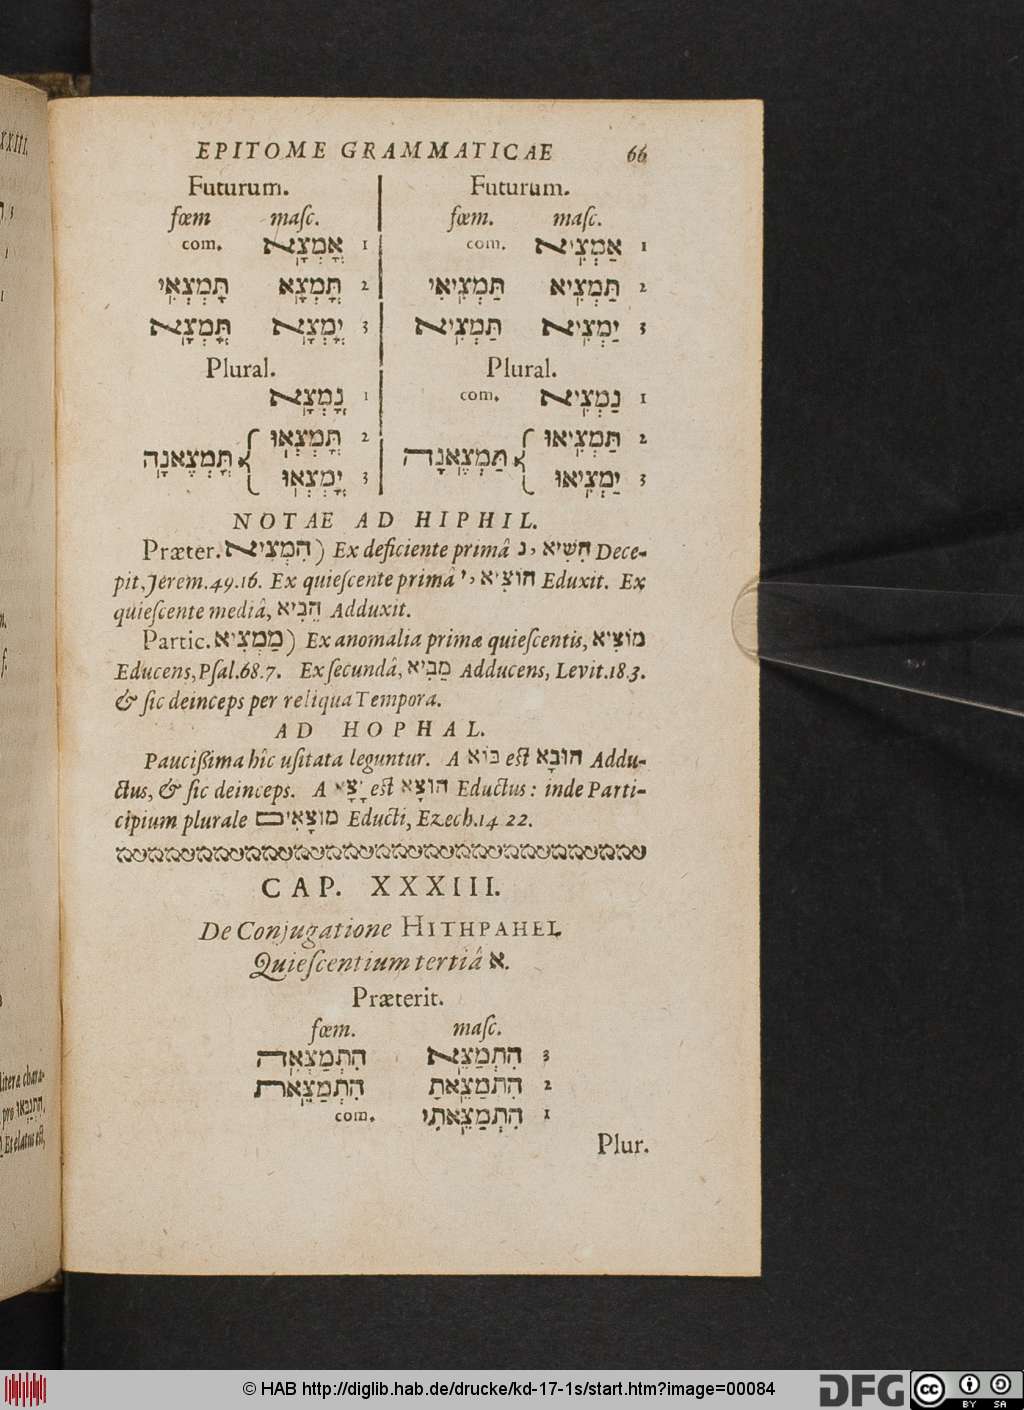 EPITOME GRAMMATICAE 66
Futurum. Futurum.
fœm maſc. fœm. maſc.
com. אֳמְצָא 1 com. אַמְצִיא 1
תָּמְצְאִי תָּמְצָא 2 תַּמְצִיאִי תַּמְצִיא 2
תָּמְצָא יָמְצָא 3 תַּמְצִיא יַמְצִיא 3
Plural. Plural.
נָמְצָא 1 com. נַמְצִיא 1
תָּמְצְאוּ 2 תַּמְצִיאוּ 2
תָּמְצֶאנָה תַּמְצֶאנָה
יָמְצְאוּ 3 יַמְצִיאוּ 3
NOTAE AD HIPHIL.
Præter. הִמְצִיא) Ex deficiente primâ נ, הִשִּׁיא Dece-
pit, Jerem.49.16. Ex quieſcente primâ י, הוֹצִיא Eduxit. Ex
quieſcente mediâ, הֵבִיא Adduxit.
Partic. מַמְצִיא) Ex anomalia primæ quieſcentis, מוֹצִיא
Educens, Pſal.68.7. Ex ſecundâ, מֵבִיא Adducens, Levit.18.3.
& ſic deinceps per reliqua Tempora.
AD HOPHAL.
Pauciſſima hîc uſitata leguntur. A בּוֹא eſt הוּבָא Addu-
ctus, & ſic deinceps. A יָצָא eſt הוּצָא Eductus: inde Parti-
cipium plurale מוּצָאִים Educti, Ezech.14 22.
CAP. XXXIII.
De Conjugatione HITHPAHEL
Quieſcentium tertiâ א.
Præterit.
fœm. maſc.
הִתְמַצְּאָה הִתְמַצֵּא 3
הִתְמַצֵּאת הִתְמַצֵּאתָ 2
com. הִתְמַצֵּאתִי 1
Plur.
XXIII.
literæ chara-
pro
Et elatus eſt,
© HAB http://diglib.hab.de/drucke/kd-17-1s/start.htm?image=00084
DFG
cc BY SA